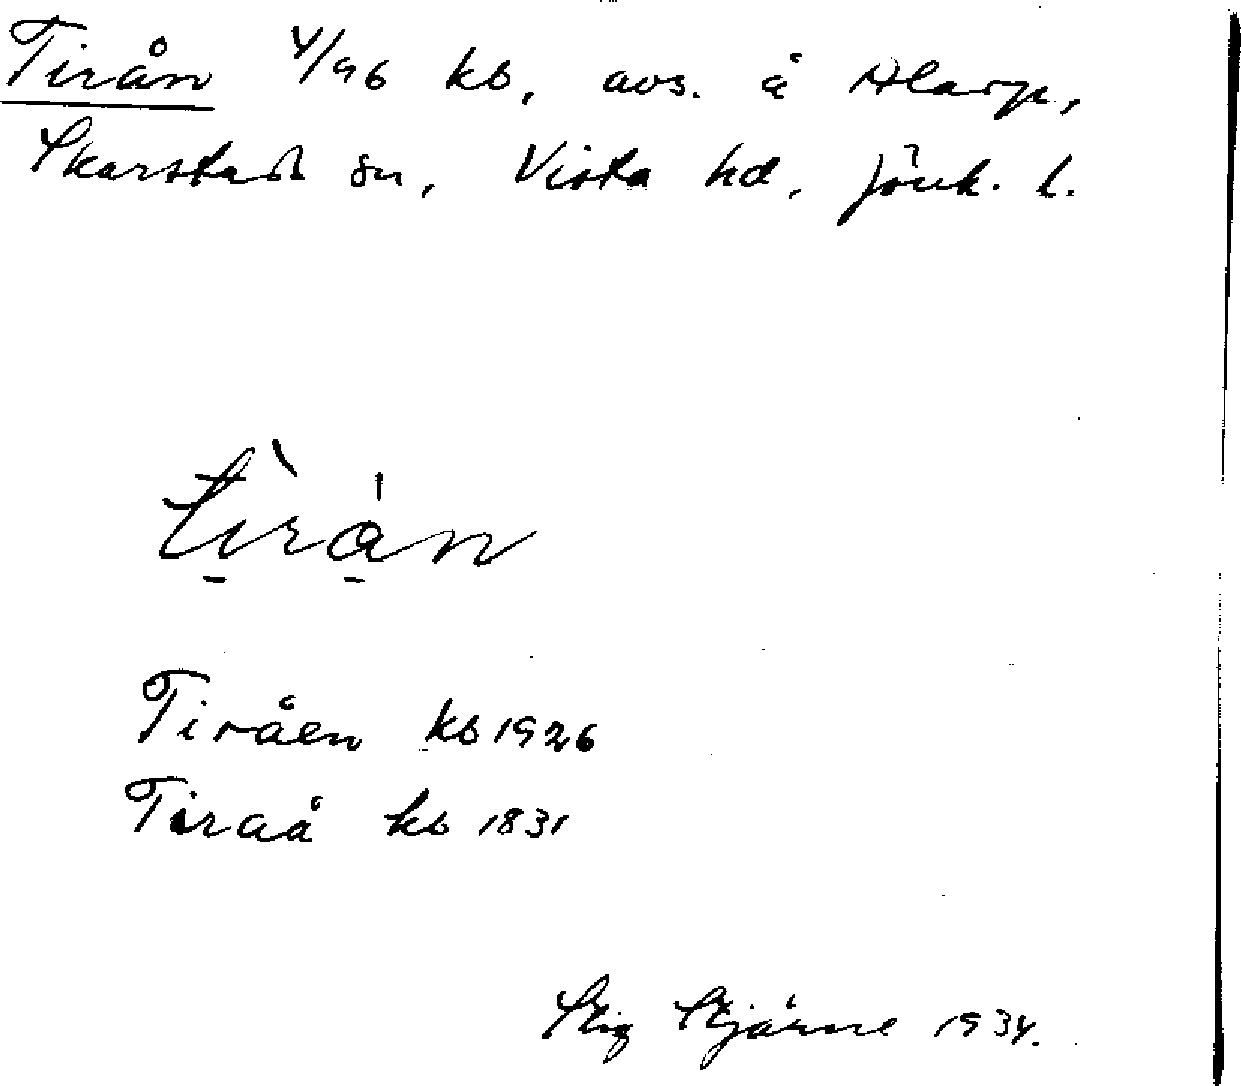 Tirån 4/96 kb, avs. å Alarp,
Skarstad sn, Vista hd, Jönk. l.
tìrån
Tiråen kb 1926
Tiraå kb 1831
Stig Stjärne 1934.